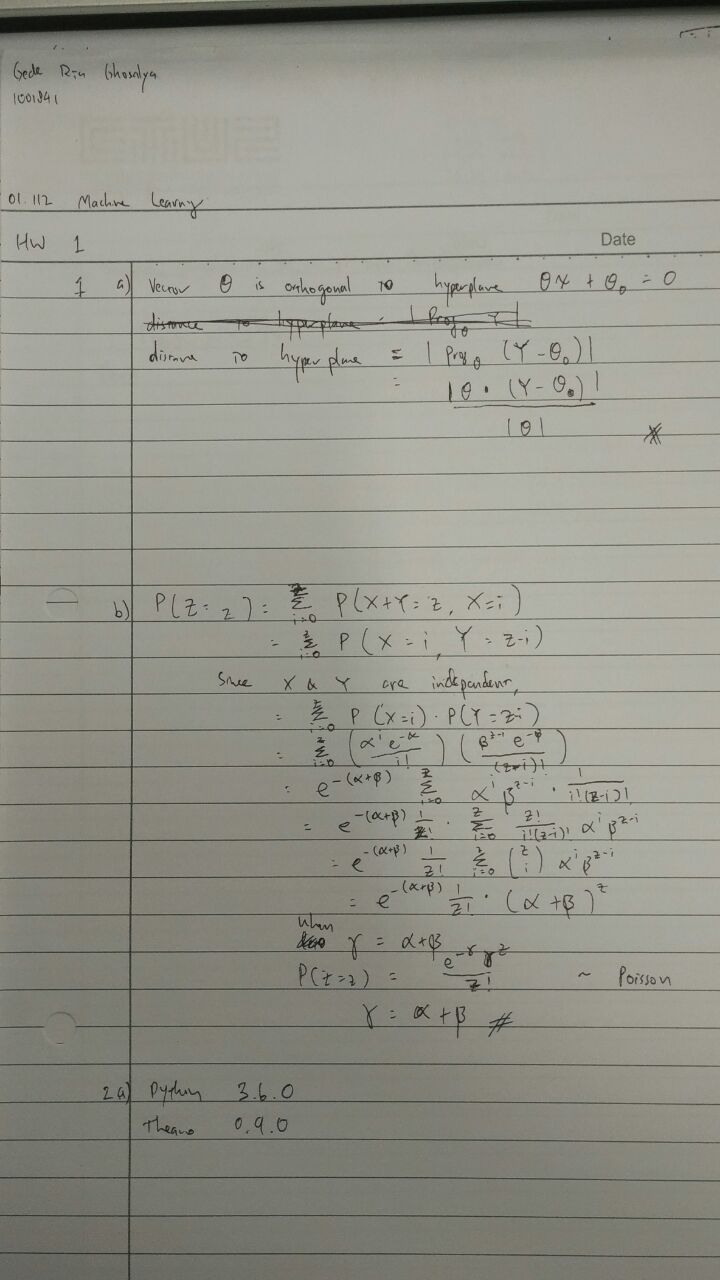 Gede Ria Ghosalya
1001841
01.112 Machine Learning
HW 1
Date
1 a) Vector θ is orthogonal to hyperplane θx + θ₀ = 0
distance to hyperplane = | Proj_θ Y |
distance to hyperplane = | Proj_θ (Y - θ₀) |
= |θ · (Y - θ₀)| / |θ|
b) P(Z = z) = Σ_{i=0}^{z} P(X+Y = z, X=i)
= Σ_{i=0}^{z} P(X = i, Y = z-i)
Since X & Y are independent,
= Σ_{i=0}^{z} P(X=i) · P(Y = z-i)
= Σ_{i=0}^{z} (α^i e^{-α} / i!) (β^{z-i} e^{-β} / (z-i)!)
= e^{-(α+β)} Σ_{i=0}^{z} α^i β^{z-i} · 1 / i!(z-i)!
= e^{-(α+β)} 1/z! · Σ_{i=0}^{z} z! / i!(z-i)! α^i β^{z-i}
= e^{-(α+β)} 1/z! Σ_{i=0}^{z} (z i) α^i β^{z-i}
= e^{-(α+β)} 1/z! · (α + β)^z
when γ = α+β
P(Z=z) = e^{-γ} γ^z / z! ~ Poisson
γ = α + β #
2 a) Python 3.6.0
Theano 0.9.0